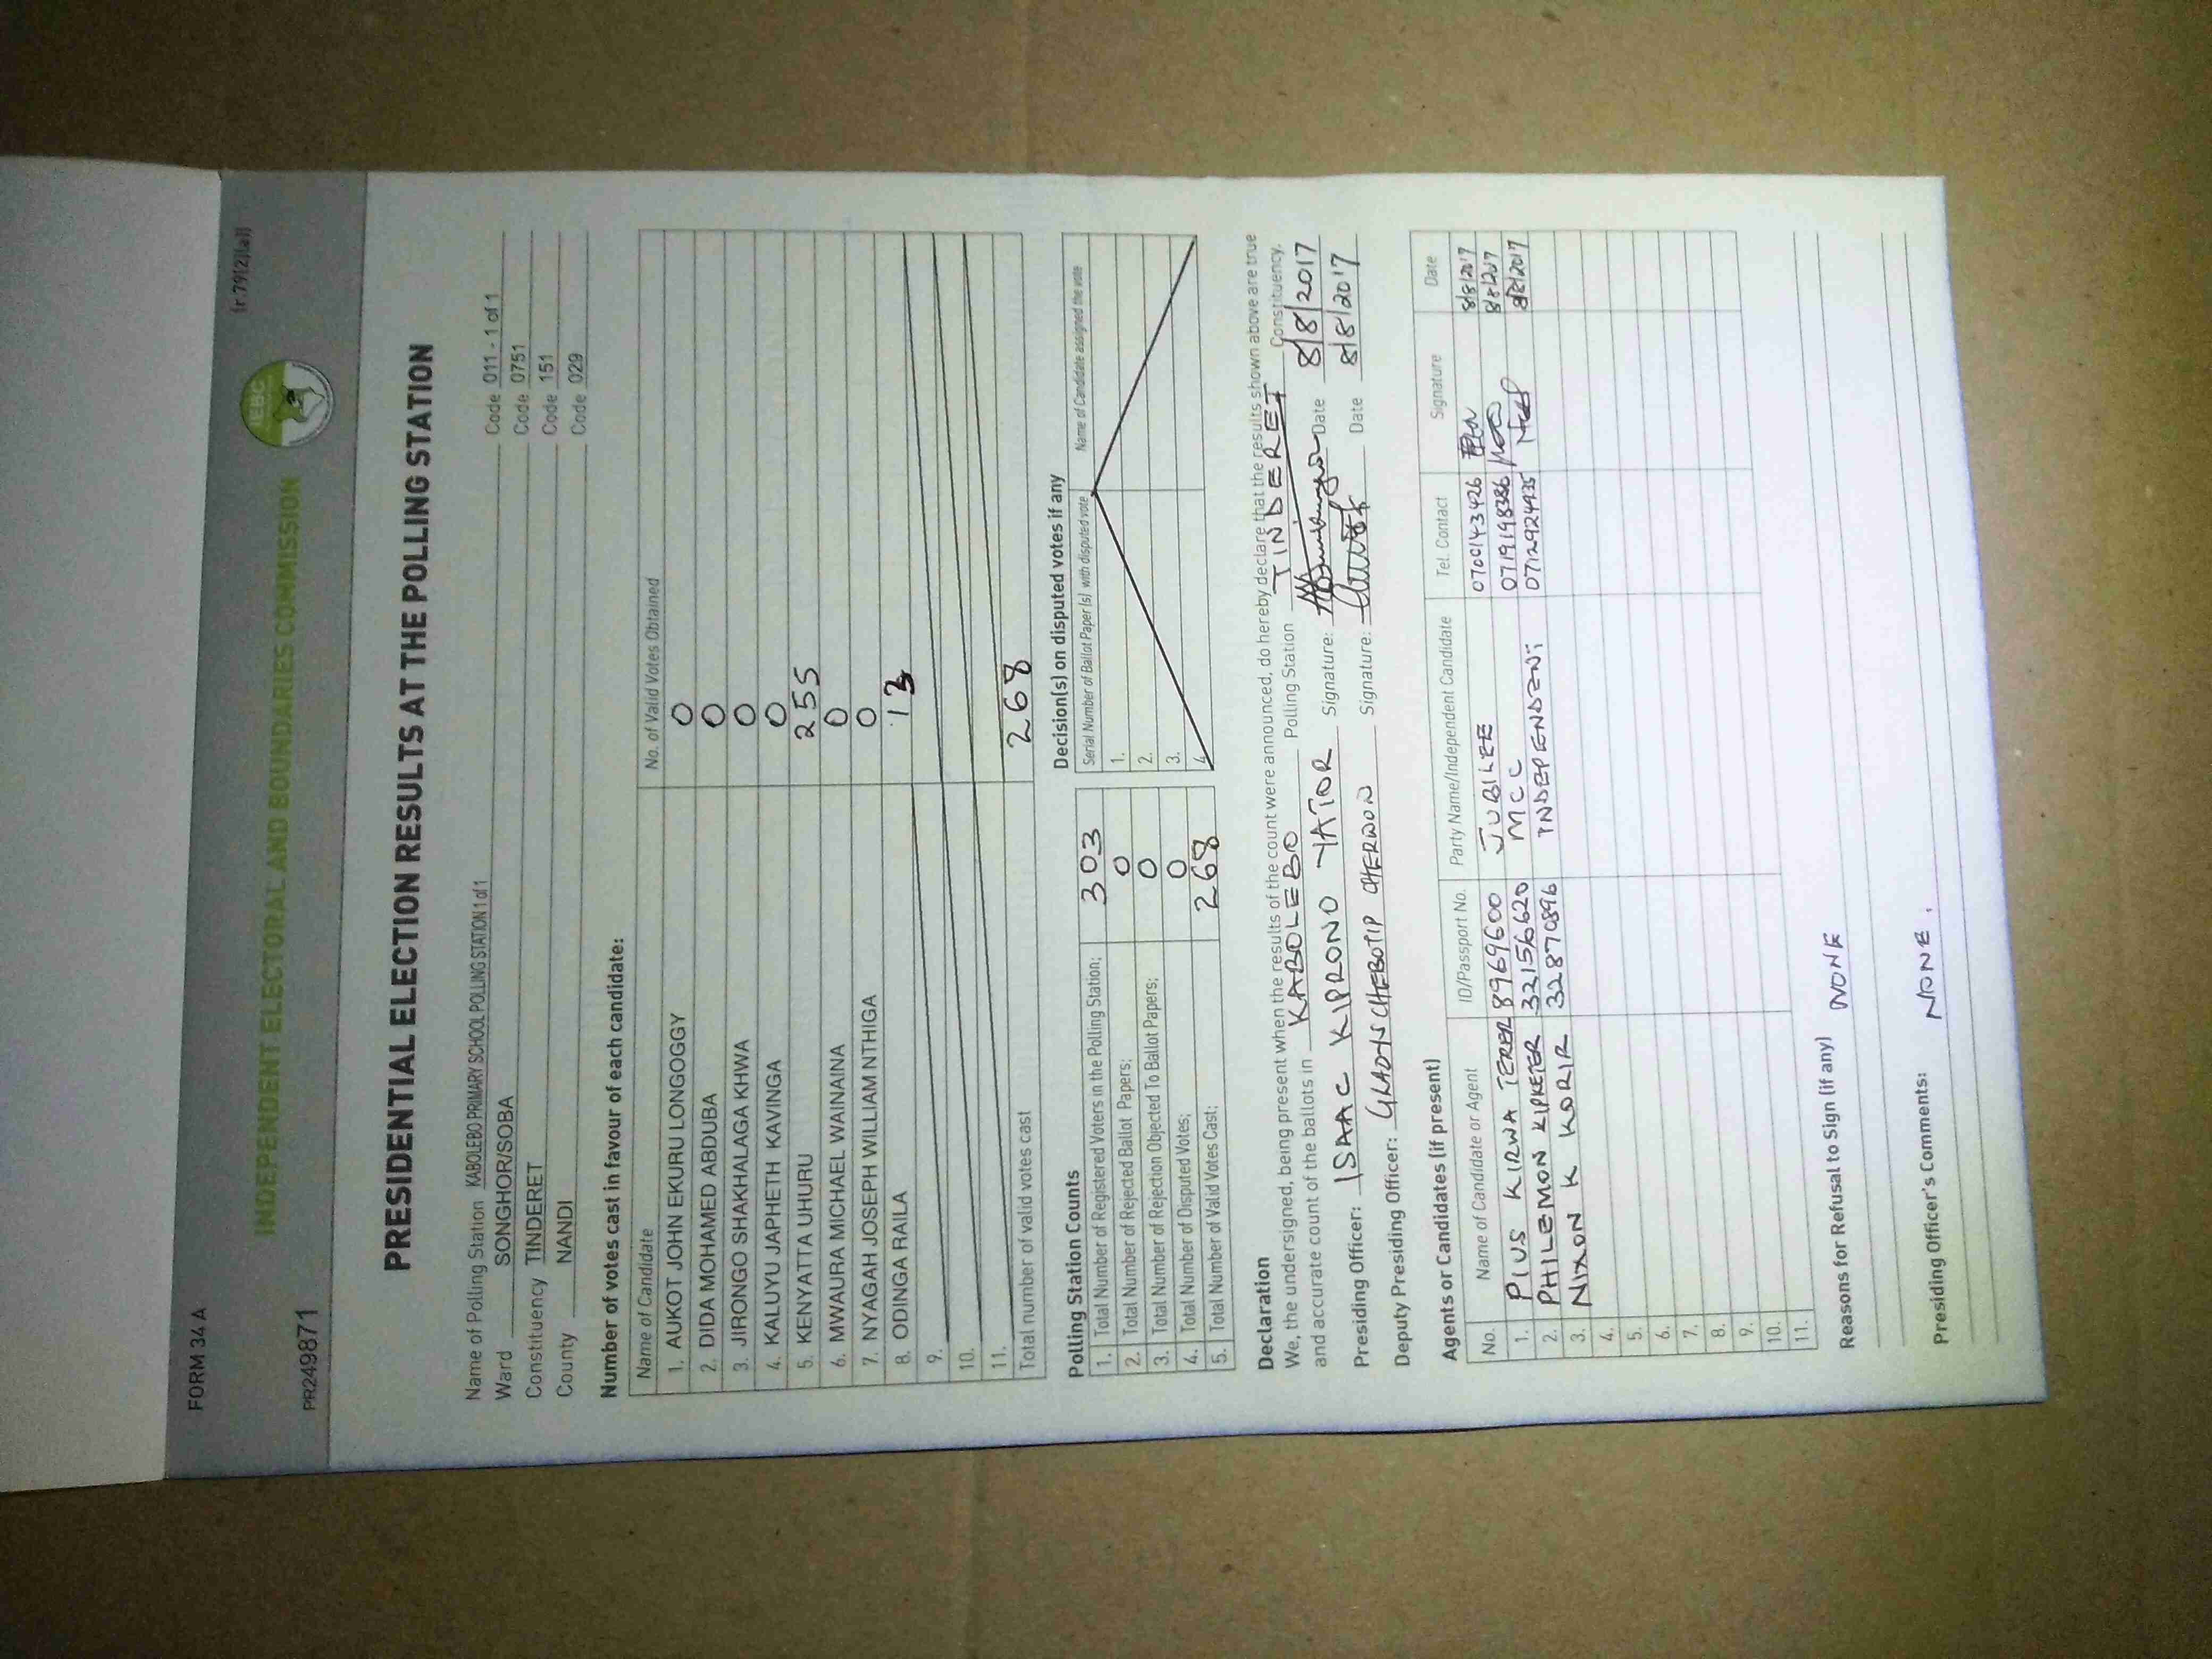 FORM 34 A
(r.79(2)(a))
INDEPENDENT ELECTORAL AND BOUNDARIES COMMISSION
IEBC
PR249871
PRESIDENTIAL ELECTION RESULTS AT THE POLLING STATION
Name of Polling Station KABOLEBO PRIMARY SCHOOL POLLING STATION 1 of 1 Code 011 - 1 of 1
Ward SONGHOR/SOBA Code 0751
Constituency TINDERET Code 151
County NANDI Code 029
Number of votes cast in favour of each candidate:
Name of Candidate No. of Valid Votes Obtained
1. AUKOT JOHN EKURU LONGOGGY 0
2. DIDA MOHAMED ABDUBA 0
3. JIRONGO SHAKHALAGA KHWA 0
4. KALUYU JAPHETH KAVINGA 0
5. KENYATTA UHURU 255
6. MWAURA MICHAEL WAINAINA 0
7. NYAGAH JOSEPH WILLIAM NTHIGA 0
8. ODINGA RAILA 13
9.
10.
11.
Total number of valid votes cast 268
Polling Station Counts
1. Total Number of Registered Voters in the Polling Station; 303
2. Total Number of Rejected Ballot Papers; 0
3. Total Number of Rejection Objected To Ballot Papers; 0
4. Total Number of Disputed Votes; 0
5. Total Number of Valid Votes Cast; 268
Decision(s) on disputed votes if any
Serial Number of Ballot Paper (s) with disputed vote Name of Candidate assigned the vote
1.
2.
3.
4.
Declaration
We, the undersigned, being present when the results of the count were announced, do hereby declare that the results shown above are true
and accurate count of the ballots in KABOLEBO Polling Station TINDERET Constituency.
Presiding Officer: ISAAC KIPRONO YATOR Signature: Date 8/8/2017
Deputy Presiding Officer: GLADYS CHEBOTIP CHERWON Signature: Date 8/8/2017
Agents or Candidates (if present)
No. Name of Candidate or Agent ID/Passport No. Party Name/Independent Candidate Tel. Contact Signature Date
1. PIUS KIRWA TERER 8969600 JUBILEE 0700143426 8/8/2017
2. PHILEMON KIPKETER 32156620 MCC 0719198386 8/8/2017
3. NIXON K KORIR 32870896 INDEPENDENT 0712924935 8/8/2017
4.
5.
6.
7.
8.
9.
10.
11.
Reasons for Refusal to Sign (if any) NONE
Presiding Officer's Comments: NONE.